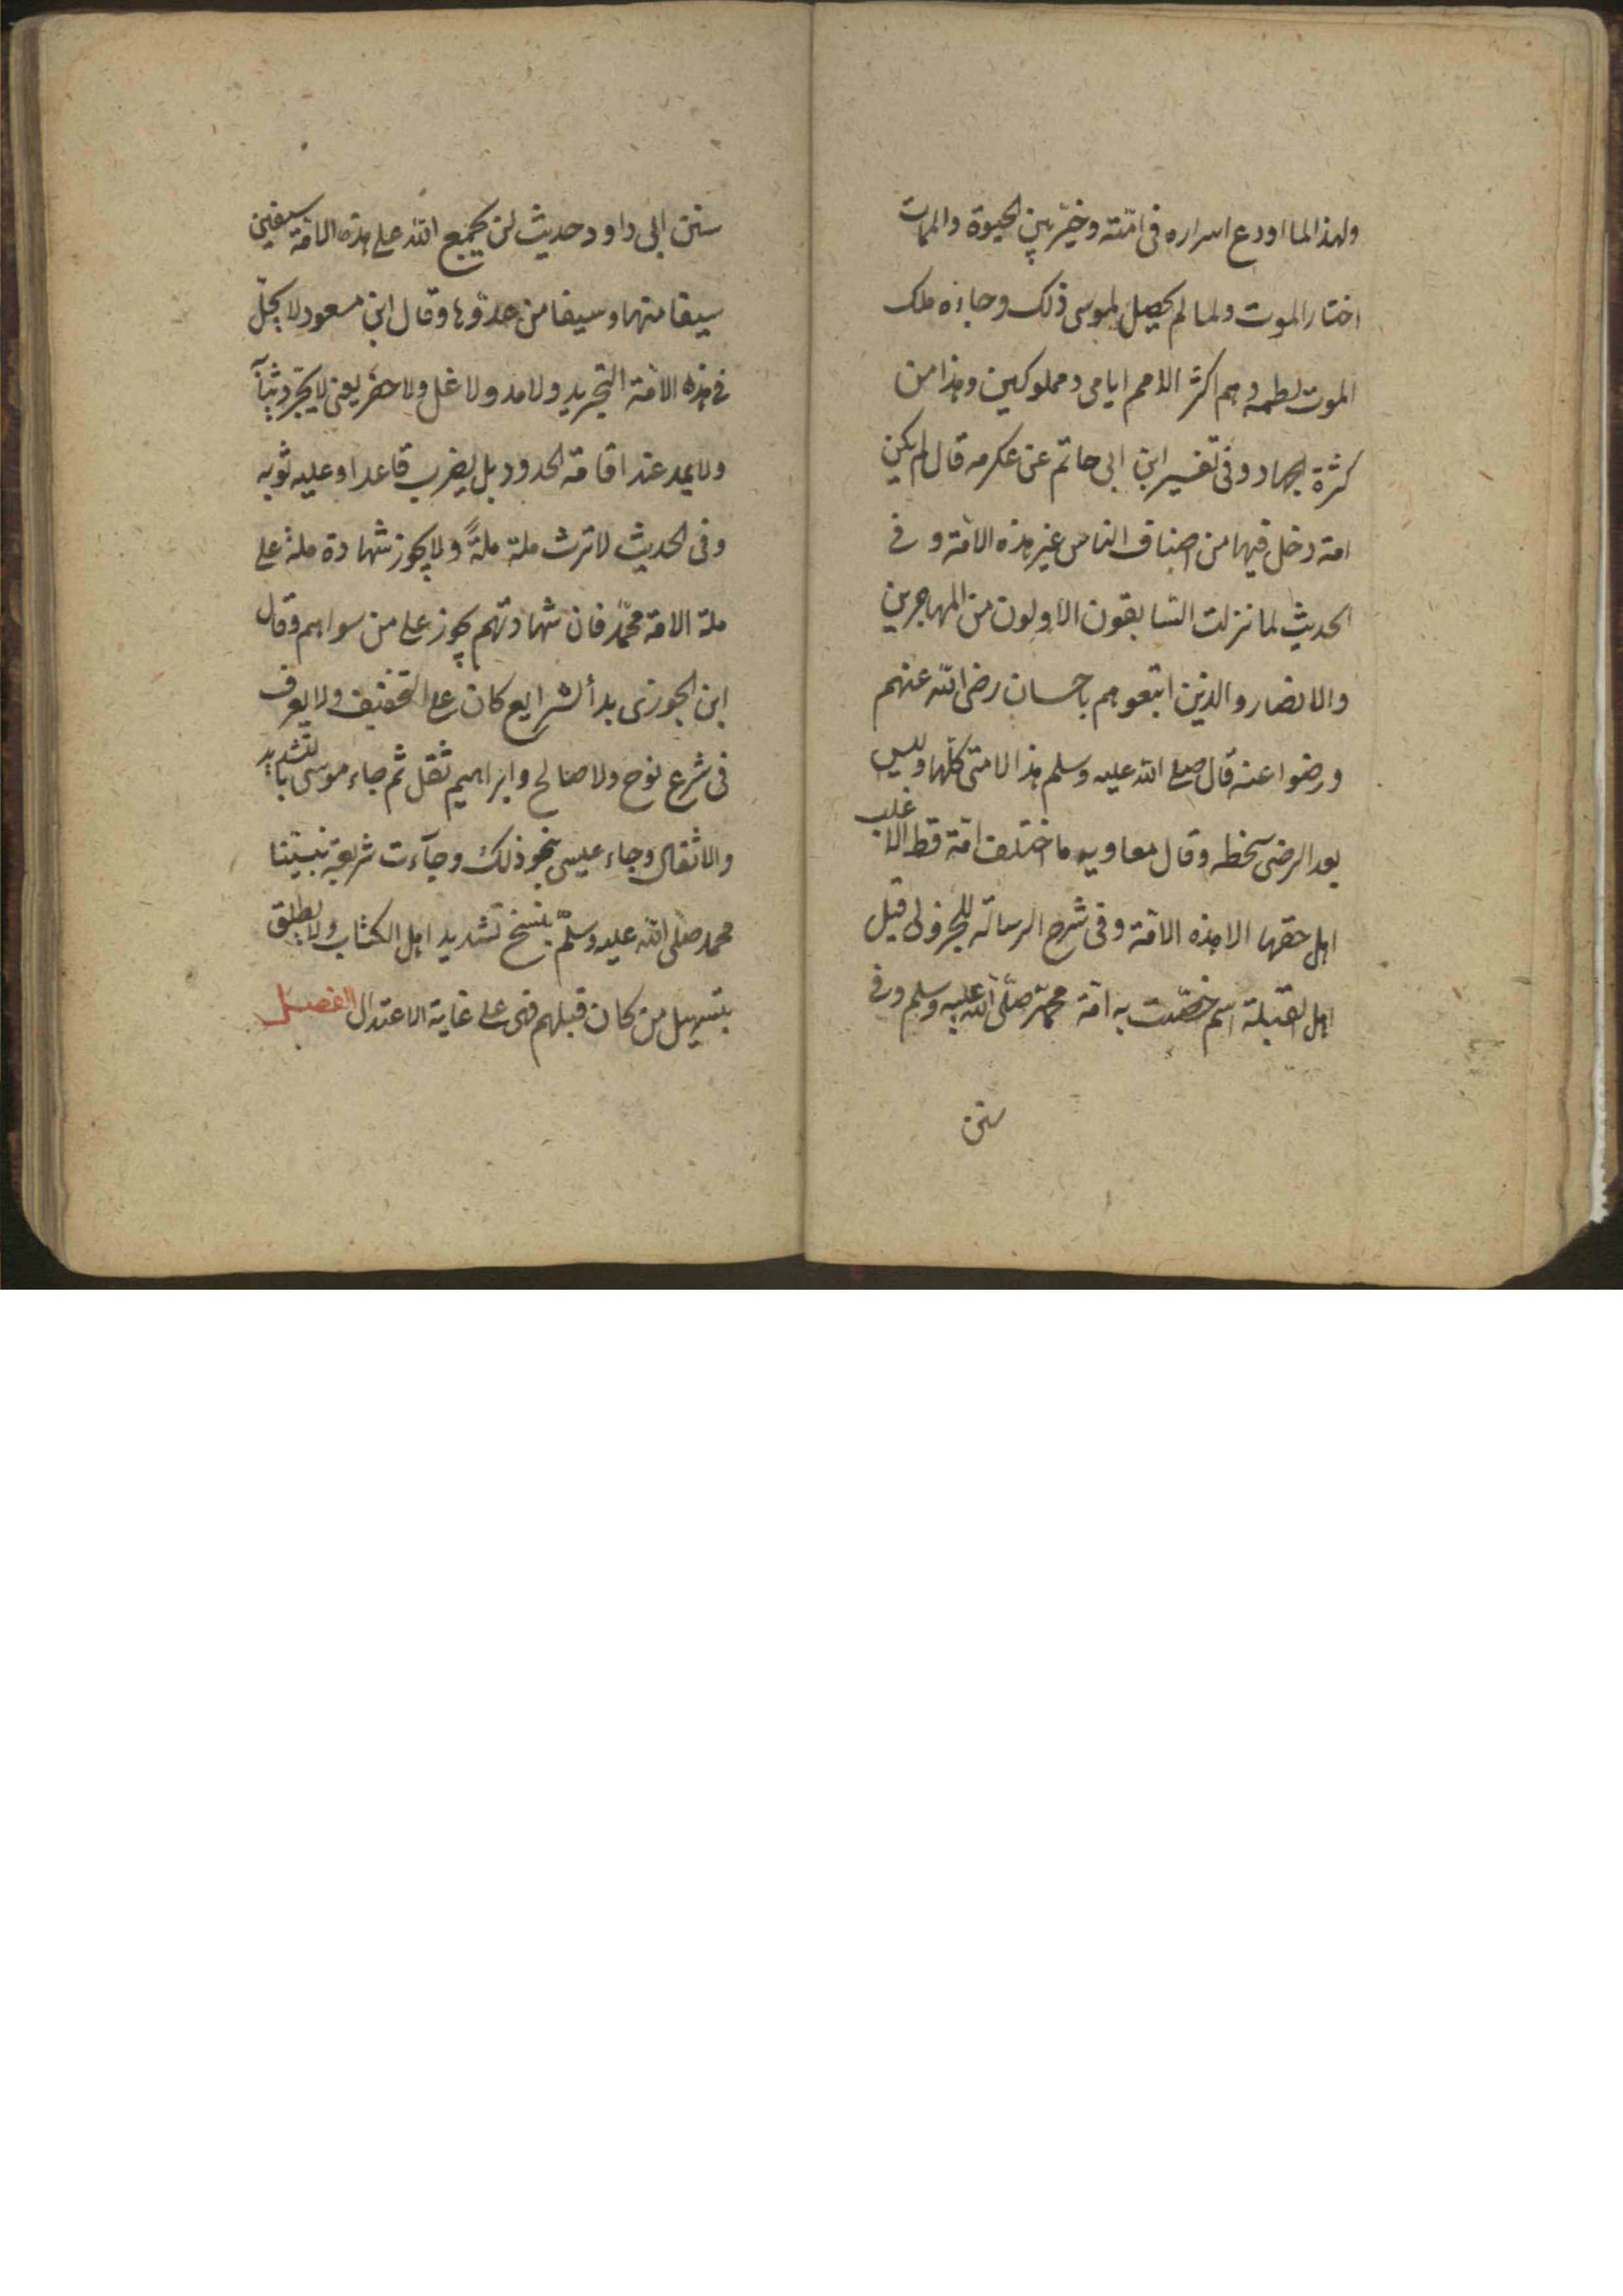 ولهذا لما اودع اسراره فى امّته وخيّر بين الحيوة والممات
اختار الموت ولما لم يحصل لموسى ذلك وجاءه ملك
الموت لطمه وهم اكثر الامم ايامى ومملوكين وهذا من
كثرة الجهاد وفى تفسير ابن ابى حاتم عن عكرمه قال لم يكن
امة دخل فيها من اصناف الناس غير هذه الامّة وفى
الحديث لما نزلت السّابقون الاولون من المهاجرين
والانصار والذين اتبعوهم باحسان رضى الله عنهم
ورضوا عنه قال صلى الله عليه وسلم هذا لامتى كلّها وليس
بعد الرضى سخطه وقال معاويه ما اختلف امّة قط الا غلب
اهل حقها الا هذه الامّة وفى شرح الرسالة للجزولى قيل
اهل القبلة اسم خصّت به امّة محمّد صلّى الله عليه وسلم وفى
سنن
سنن ابى داود حديث لن يجمع الله على هذه الامّة سيفين
سيفا منها وسيفا من عدوّها وقال ابن مسعود لا يحلّ
فى هذه الامّة التجريد ولا مد ولا غل ولا حضر يعنى لا يجرّد ثيابا
ولا يمد عند اقامة الحدود بل يضرب قاعدا وعليه ثوبه
وفى الحديث لا ترث ملة ملةً ولا يجوز شهادة ملة على
ملة الا امة محمّد فان شهادتهم يجوز على من سواهم وقال
ابن الجوزى بدأ الشرايع كان على التخفيف ولا يعرف
فى شرع نوح ولا صالح وابراهيم ثقل ثم جاء موسى بالتشديد
والاثقال وجاء عيسى بنحو ذلك وجآءت شريعة نبيّنا
محمد صلّى الله عليه وسلّم بنسخ تشديد اهل الكتاب ولا يطلق
بتسهيل من كان قبلهم فهى على غاية الاعتدال الفصل